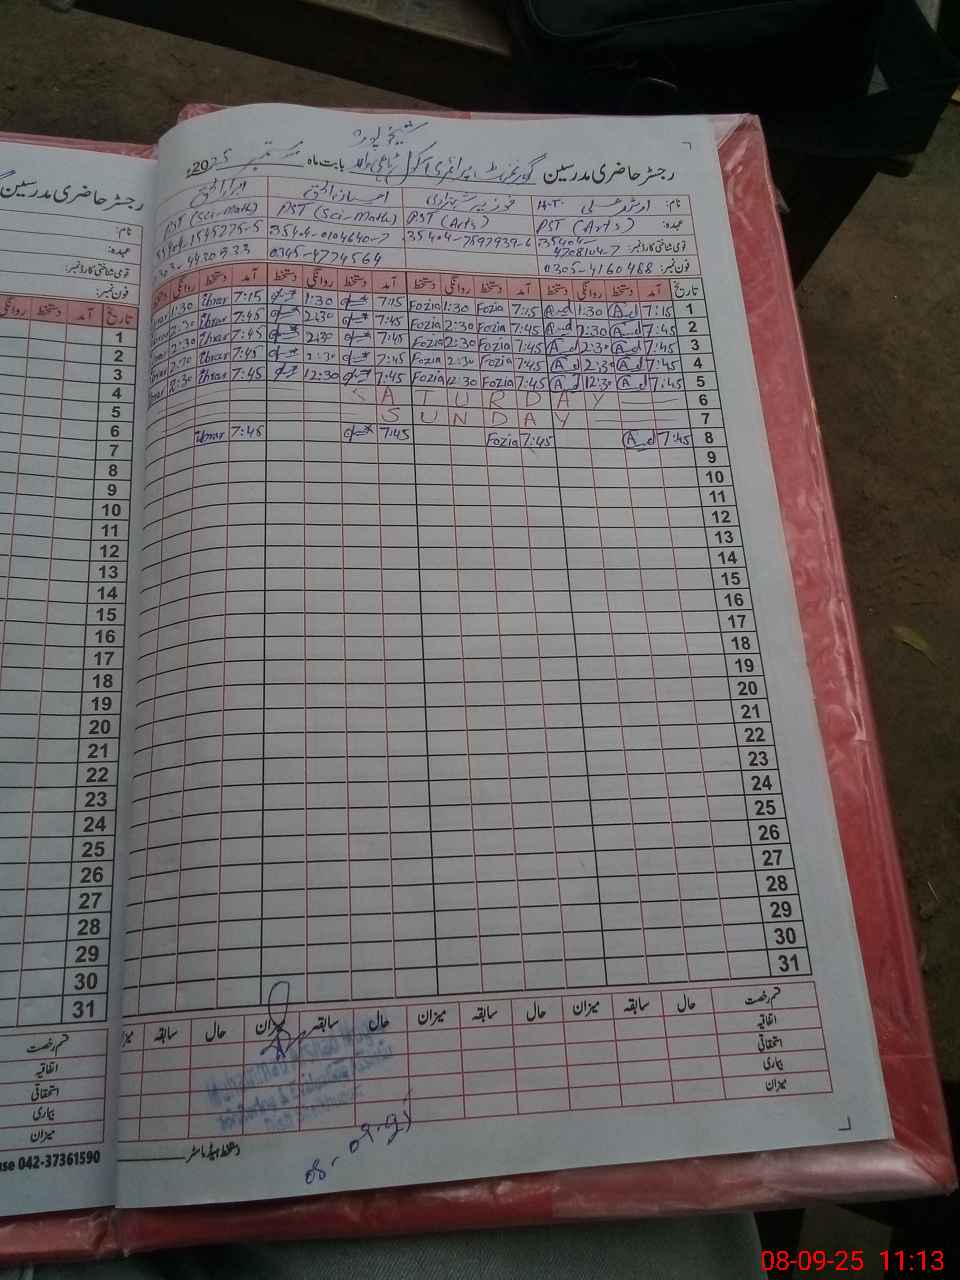 رجسٹر حاضری مدرسین گورنمنٹ پرائمری سکول بابت ماہ ستمبر 2025ء
نام: H.T. فوزیہ احسان الحق ابرار الحق
عہدہ: PST (Arts) PST (Arts) PST (Sci-Math) PST (Sci-Math)
قومی شناختی کارڈ نمبر: 35404-4708104-7 35404-7897939-6 35404-0104640-7 35404-1545275-5
فون نمبر: 0305-4160488 0345-4774564
تاریخ آمد دستخط روانگی دستخط آمد دستخط روانگی دستخط آمد دستخط روانگی دستخط آمد دستخط روانگی دستخط
1 7:15 1:30 7:15 Fozia 1:30 Fozia 7:15 1:30 7:15 Ibrar 1:30
2 7:45 2:30 7:45 Fozia 2:30 Fozia 7:45 2:30 7:45 Ibrar 2:30
3 7:45 2:30 7:45 Fozia 2:30 Fozia 7:45 2:30 7:45 Ibrar 2:30
4 7:45 2:30 7:45 Fozia 2:30 Fozia 7:45 2:30 7:45 Ibrar 2:30
5 7:45 12:30 7:45 Fozia 12:30 Fozia 7:45 12:30 7:45 Ibrar 12:30
6 SATURDAY
7 SUNDAY
8 7:45 7:45 Fozia 7:45 7:45 Ibrar
9
10
11
12
13
14
15
16
17
18
19
20
21
22
23
24
25
26
27
28
29
30
31
قسم رخصت حال سابقہ میزان حال سابقہ میزان حال سابقہ میزان حال سابقہ میزان
اتفاقیہ
استحقاقی
بیماری
میزان
دستخط ہیڈ ماسٹر
08-09-25
رجسٹر حاضری مدرسین
نام:
عہدہ:
قومی شناختی کارڈ نمبر:
فون نمبر:
تاریخ آمد دستخط روانگی
1
2
3
4
5
6
7
8
9
10
11
12
13
14
15
16
17
18
19
20
21
22
23
24
25
26
27
28
29
30
31
قسم رخصت
اتفاقیہ
استحقاقی
بیماری
میزان
042-37361590
08-09-25 11:13